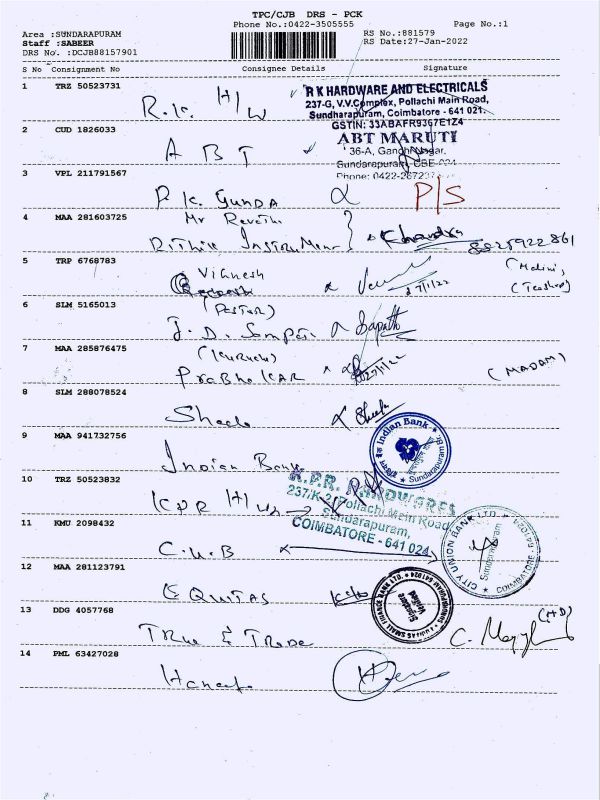 TPC/CJB DRS - PCK
Phone No.:0422-3505555
Page No.:1
Area :SUNDARAPURAM
RS No.:881579
Staff :SABEER
RS Date:27-Jan-2022
DRS No. :DCJB88157901
S No Consignment No Consignee Details Signature
1 TRZ 50523731
R.K. H/W
R K HARDWARE AND ELECTRICALS
237-G, V.V.Complex, Pollachi Main Road,
Sundharapuram, Coimbatore - 641 021.
GSTIN: 33ABAFR9367E1Z4
2 CUD 1826033
A B T
ABT MARUTI
36-A, Gandhi Nagar,
Sundarapuram, CBE-024
Phone: 0422-
3 VPL 211791567
P/S
4 MAA 281603725
Mr Revathi
Khandra
5 TRP 6768783
Vignesh
27/1/22
6 SLM 5165013
7 MAA 285876475
Prabhakar
(MADAM)
8 SLM 288078524
Sheela
9 MAA 941732756
Indian Bank
Indian Bank
Sundarapuram Br.
10 TRZ 50523832
KPR H/W
K.P.R. HARDWARES
237/K-2, Pollachi Main Road
Sundarapuram,
COIMBATORE - 641 024
11 KMU 2098432
C.U.B
CITY UNION BANK LTD.
Sundarapuram
COIMBATORE - 641024
12 MAA 281123791
EQUITAS
EQUITAS SMALL FINANCE BANK LTD.
Signature
Verified
13 DDG 4057768
True & Trade
14 PML 63427028
Haneefa